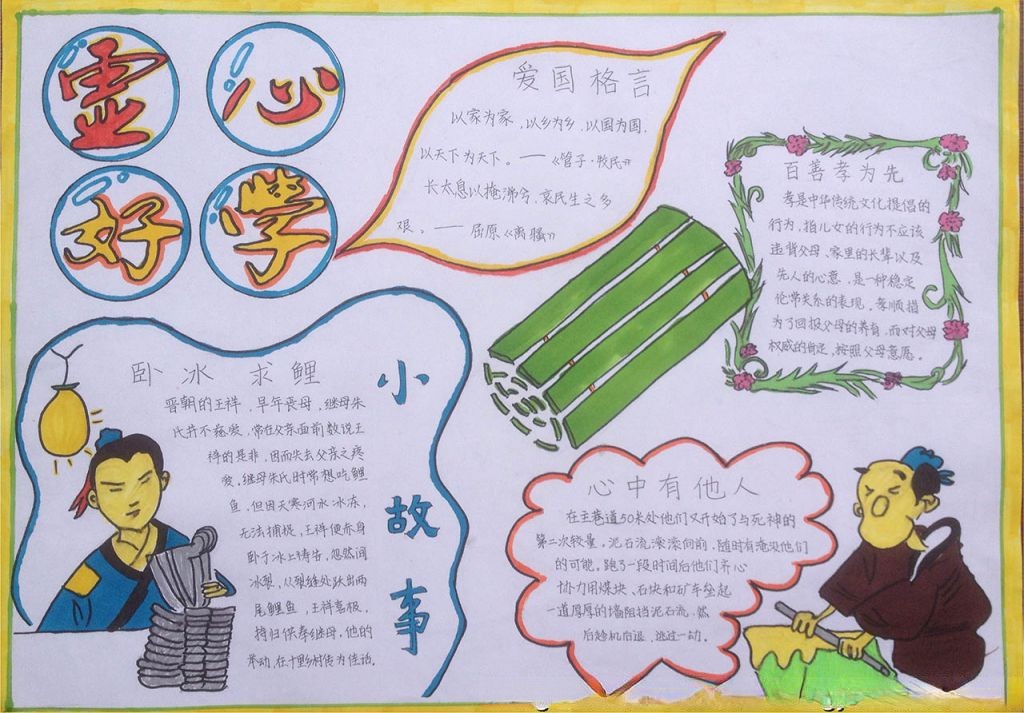 灵 心
好 学
爱国格言
以家为家，以乡为乡，以国为国，
以天下为天下。——《管子·牧民》
长太息以掩涕兮，哀民生之多
艰。——屈原《离骚》
百善孝为先
孝是中华传统文化提倡的
行为，指儿女的行为不应该
违背父母、家里的长辈以及
先人的心意，是一种稳定
伦常关系的表现。孝顺指
为了回报父母的养育，而对父母
权威的肯定，按照父母意愿。
小故事
卧冰求鲤
晋朝的王祥，早年丧母，继母朱
氏并不慈爱，常在父亲面前数说王
祥的是非，因而失去父亲之疼
爱。继母朱氏时常想吃鲤
鱼，但因天寒河水冰冻，
无法捕捉，王祥便赤身
卧于冰上祷告，忽然间
冰裂，从裂缝处跃出两
尾鲤鱼，王祥喜极，
持归供奉继母，他的
举动，在十里乡村传为佳话。
心中有他人
在主巷道50米处他们又开始了与死神的
第二次较量，泥石流滚滚向前，随时有淹没他们
的可能。跑了一段时间后他们齐心
协力用煤块、石块和矿车垒起
一道厚厚的墙阻挡泥石流，然
后趁机后退，逃过一劫。